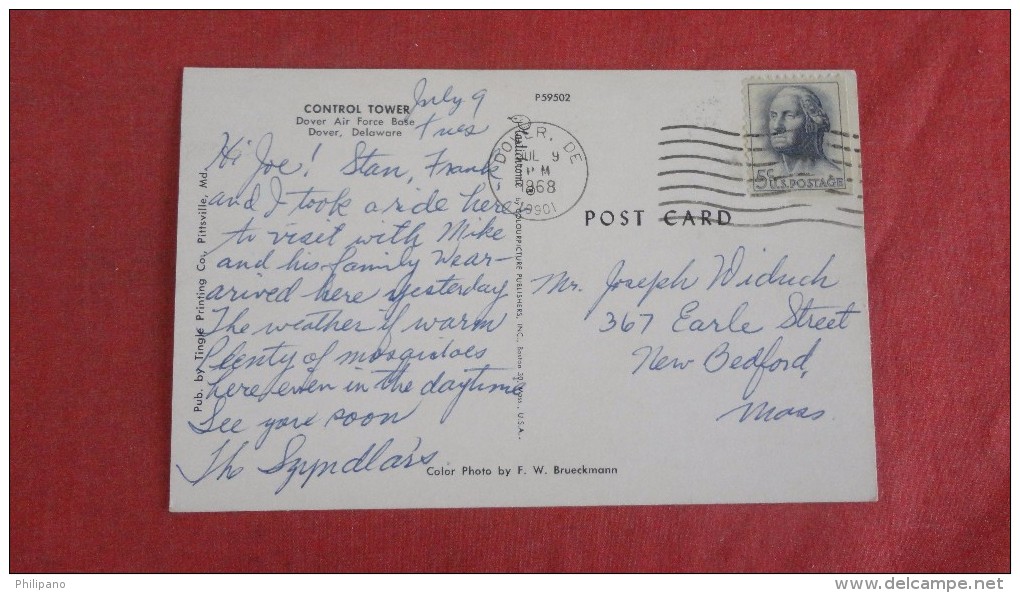 CONTROL TOWER
Dover Air Force Base
Dover, Delaware
July 9
Tues
Hi Joe! Stan, Frank
and I took a ride here
to visit with Mike
and his family Wear-
arived here yesterday
The weather if warm
Plenty of mosqidoes
here even in the daytime
See you soon
The Szyndlars
Pub. by Tingle Printing Co., Pittsville, Md.
Color Photo by F. W. Brueckmann
P59502
Plastichrome ® by COLOURPICTURE PUBLISHERS, INC., Boston 30, Mass., U.S.A.
DOVER, DE
JUL 9
PM
1968
19901
5c U.S. POSTAGE
POST CARD
Mr. Joseph Widuch
367 Earle Street
New Bedford,
Mass.
Philipano
www.delcampe.net